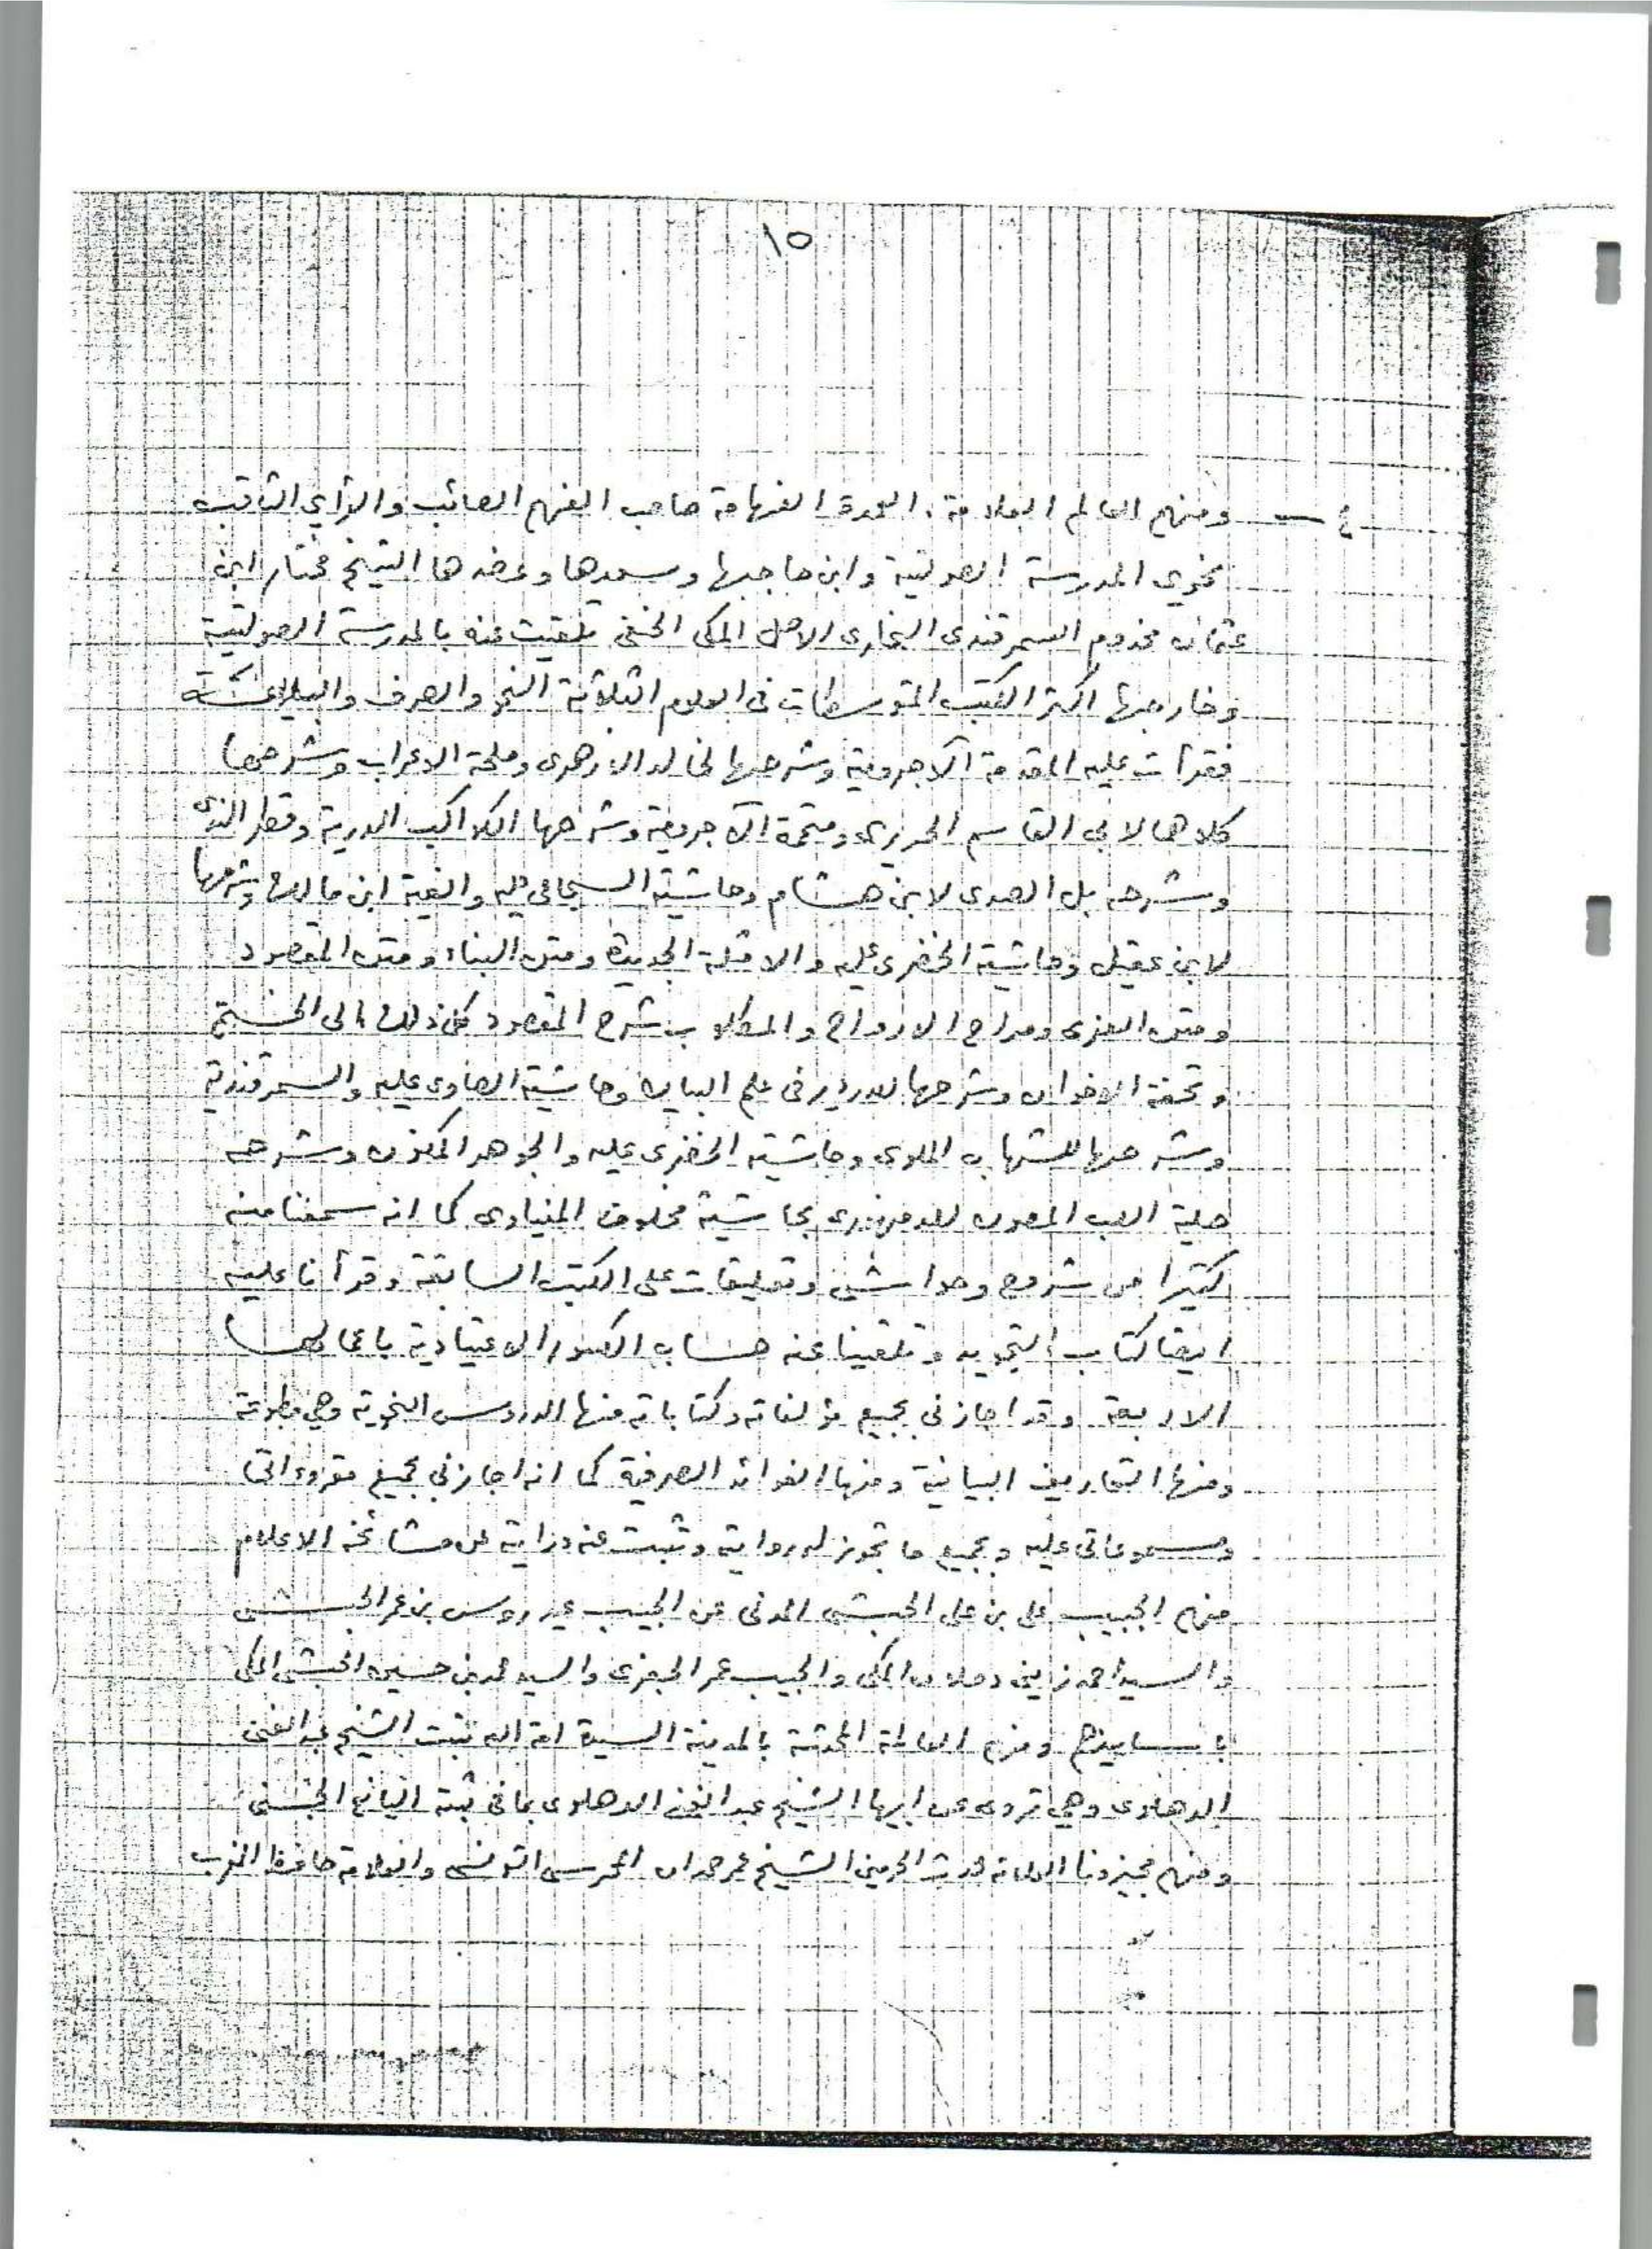 ١٥
٤ — ومنهم العالم العلامة، العمدة الفهامة صاحب الفهم الصائب والرأي الثاقب
نحوي المدرسة الصولتية وابن حاجبها وسعدها وعضدها الشيخ مختار ابن
عثمان مخدوم السمرقندى البخارى الاصل المكى الحنفى تلقيت عنه بالمدرسة الصولتية
وخارجها اكثر الكتب المتوسطات فى العلوم الثلاثة النحو والصرف والبلاغة
فقرأت عليه المقدمة الآجرومية وشرحها لخالد الازهرى وملحة الاعراب وشرحها
كلاهما لابى القاسم الحريرى ومتممة الآجرومية وشرحها الكواكب الدرية وقطر الندى
وشرحه بل الصدى لابن هشام وحاشية السجاعي عليه والفية ابن مالك وشرحها
لابن عقيل وحاشية الخضرى عليه والامثلة الجديدة ومتن البناء ومتن المقصود
ومتن العزى ومراح الارواح والمطلوب شرح المقصود كل ذلك الى الختم
وتحفة الاخوان وشرحها للدردير فى علم البيان وحاشية الصاوى عليه والسمرقندية
وشرحها للشهاب الملوى وحاشية الخضرى عليه والجوهر المكنون وشرحه
حلية اللب المصون للدمنهورى بحاشية مخلوف المنياوى كما انه سمعنا منه
كثيرا من شروح وحواشى وتعليقات على الكتب السابقة وقرأنا عليه
ايضا كتاب التجويد وتلقينا عنه حساب الكسور الاعتيادية باعمالها
الاربعة وقد اجازنى بجميع مؤلفاته وكتاباته منها الدروس النحوية وهي مطبوعة
ومنها التعاريف البيانية ومنها الفوائد الصرفية كما انه اجازني بجميع مقروءاتى
ومسموعاتى عليه وبجميع ما تجوز له روايته وثبتت عنه دراية عن مشائخه الاعلام
منهم الحبيب على بن على الحبشى المدنى عن الحبيب عيدروس بن عمر الحبشى
والسيد احمد زينى دحلان المكى والحبيب عمر الجفرى والسيد محمد بن حسين الحبشى المكى
باسانيدهم ومنهم العالمة المحدثة بالمدينة السيدة امة الله بنت الشيخ عبد الغنى
الدهلوى وهي تروى عن ابيها الشيخ عبد الغنى الدهلوى بما فى ثبته اليانع الجنى
ومنهم مجيزونا العلامة محدث الحرمين الشيخ عمر حمدان المحرسى التونسى والعلامة حافظ المغرب